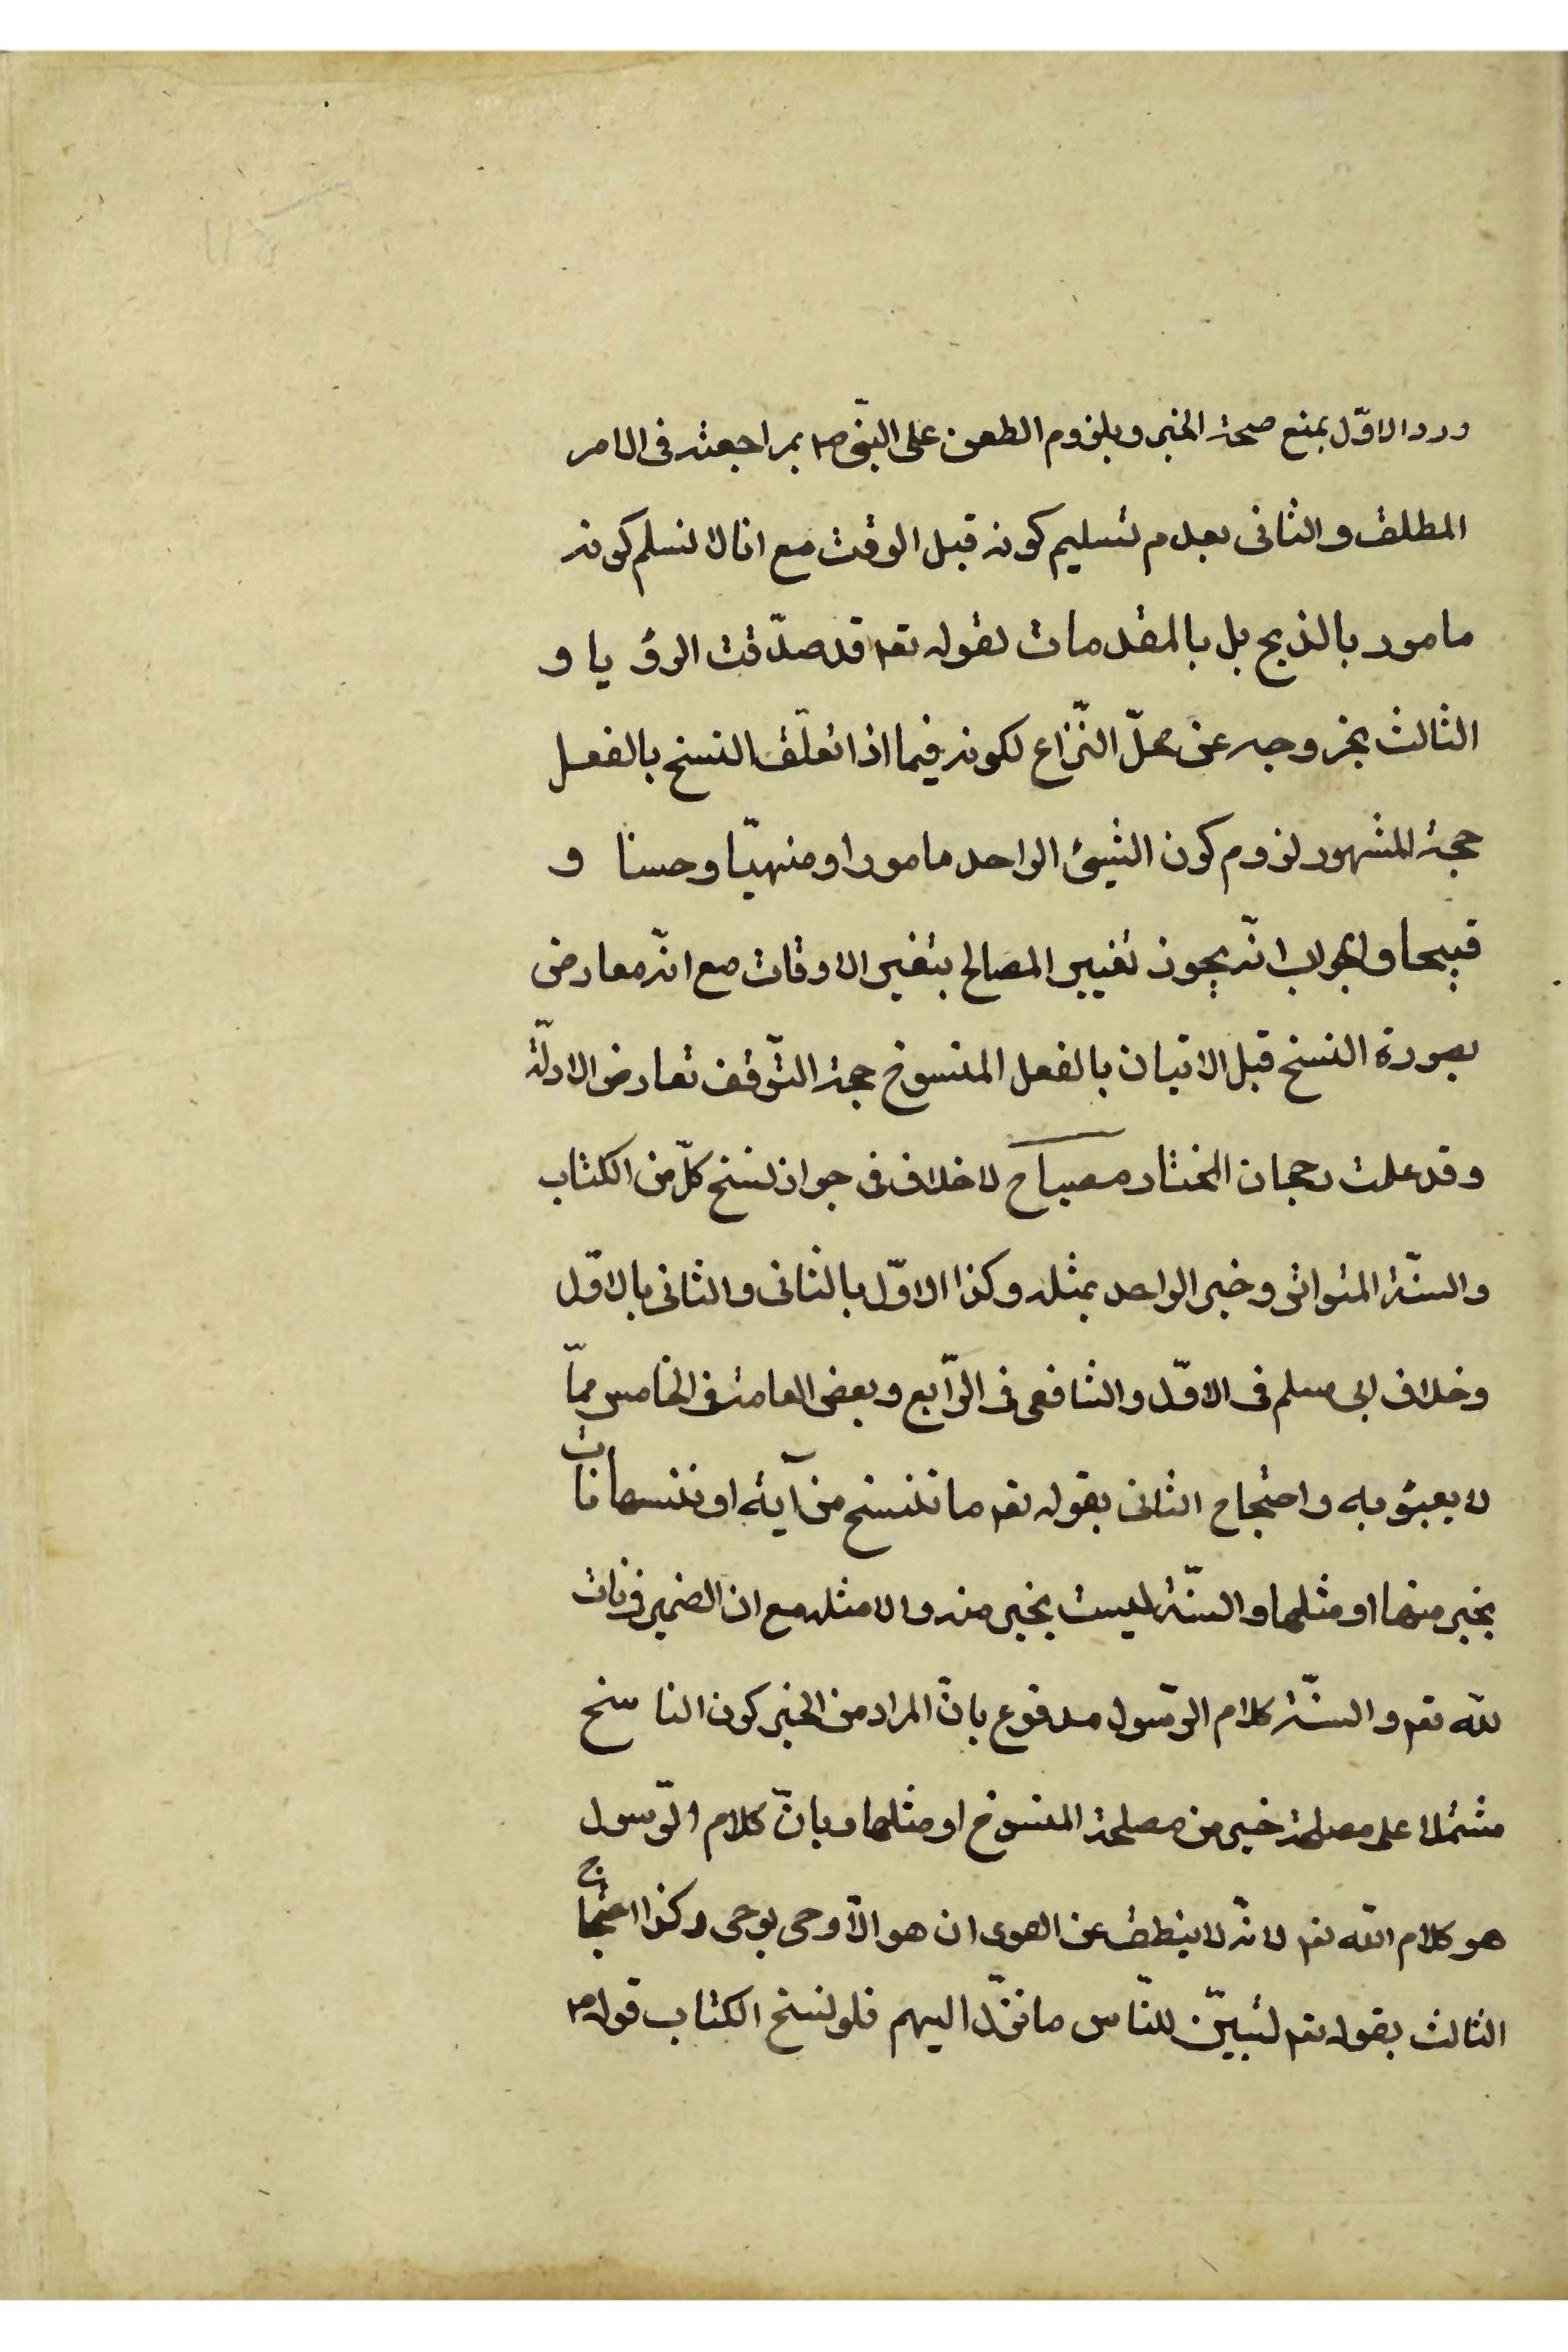 ورد الاوّل بمنع صحة الخبر وبلزوم الطعن على النبّى ص بمراجعته فى الامر
المطلق والثانى بعدم تسليم كونه قبل الوقت مع انا لا نسلم كونه
مامور بالذبح بل بالمقدمات لقوله تعم قد صدّقت الرؤيا و
الثالث بخروجه عن محلّ النّزاع لكونه فيما اذا تعلّق النسخ بالفعل
حجة المشهور لزوم كون الشيئ الواحد مامورا ومنهيّا وحسنا و
قبيحا والجواب انّه يجوز تغيير المصالح بتغير الاوقات مع انّه معارض
بصورة النسخ قبل الاتيان بالفعل المنسوخ حجة التّوقف تعارض الادلّة
وقد علمت رجحان المختار مصباح لا خلاف فى جواز نسخ كلّ من الكتاب
والسنّة المتواتر وخبر الواحد بمثله وكذا الاوّل بالثانى والثانى بالاوّل
وخلاف ابى مسلم فى الاوّل والشافعى فى الرّابع وبعض العامة فى الخامس ممّا
لا يعبؤ به واحتجاج الثانى بقوله تعم ما ننسخ من آية او ننسها نات
بخير منها او مثلها والسنّة ليست بخير منه والا مثله مع ان الضمير فى نات
لله تعم والسنّة كلام الرّسول مدفوع بانّ المراد من الخير كون الناسخ
مشتملا على مصلحة خير من مصلحة المنسوخ او مثلها وبانّ كلام الرّسول
هو كلام الله تعم لانّه لا ينطق عن الهوى ان هو الّا وحى يوحى وكذا احتجاج
الثالث بقوله تعم لتبيّن للنّاس ما نزّل اليهم فلو نسخ الكتاب قوله ص